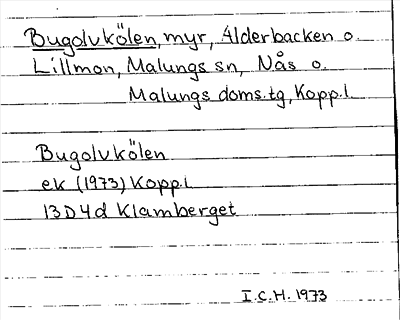 Bugolvkölen, myr, Ålderbacken o.
Lillmon, Malungs sn, Nås o.
Malungs doms.tg, Kopp.l.
Bugolvkölen
ek (1973) Kopp.l.
13D4d Klamberget
I.C.H. 1973